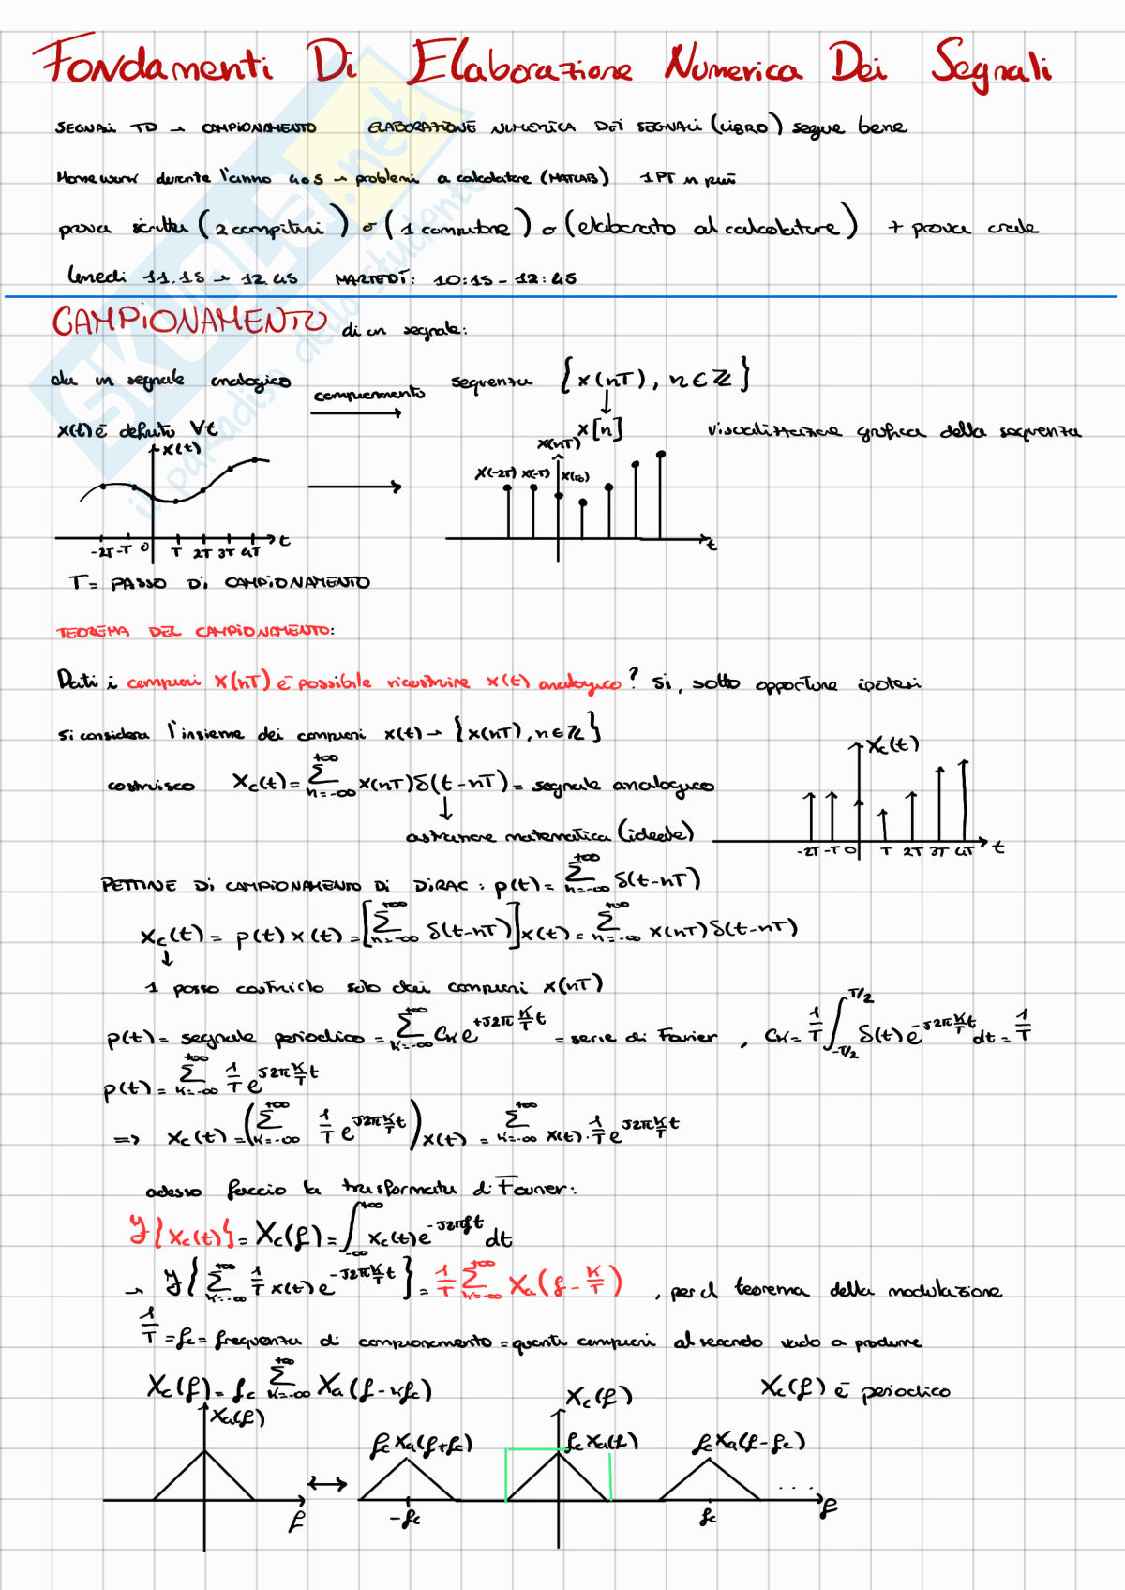 Fondamenti Di Elaborazione Numerica Dei Segnali
SEGNALI TD → CAMPIONAMENTO ELABORAZIONE NUMERICA DEI SEGNALI (LIBRO) segue bene
Homework durante l'anno 4 o 5 → problemi a calcolatore (MATLAB) 1PT in più
prova scritta (2 compitini) o (1 ) o (elaborato al calcolatore) + prova orale
lunedì 11.15 → 12.45 MARTEDÌ: 10:15 - 12:45
CAMPIONAMENTO di un segnale:
da un segnale analogico campionamento sequenza {x(nT), n∈ℤ}
x(t) è definito ∀t x[n] visualizzazione grafica della sequenza
x(t) x(nT)
x(-2T) x(-T) x(0)
-2T -T 0 T 2T 3T 4T t t
T = PASSO DI CAMPIONAMENTO
TEOREMA DEL CAMPIONAMENTO:
Dati i campioni x(nT) è possibile ricostruire x(t) analogico? Si, sotto opportune ipotesi
si considera l'insieme dei campioni x(t) → {x(nT), n∈ℤ}
costruisco Xc(t) = ∑_{n=-∞}^{+∞} x(nT)δ(t-nT) = segnale analogico Xc(t)
astrazione matematica (ideale) -2T -T 0 T 2T 3T 4T t
PETTINE DI CAMPIONAMENTO DI DIRAC: p(t) = ∑_{n=-∞}^{+∞} δ(t-nT)
Xc(t) = p(t) x(t) = [∑_{n=-∞}^{+∞} δ(t-nT)] x(t) = ∑_{n=-∞}^{+∞} x(nT)δ(t-nT)
1 posso costruirlo solo dai campioni x(nT)
p(t) = segnale periodico = ∑_{k=-∞}^{+∞} Ck e^{+j2π K/T t} = serie di Fourier , Ck = 1/T ∫_{-T/2}^{T/2} δ(t) e^{-j2π K/T t} dt = 1/T
p(t) = ∑_{k=-∞}^{+∞} 1/T e^{j2π K/T t}
=> Xc(t) = (∑_{k=-∞}^{+∞} 1/T e^{j2π K/T t}) x(t) = ∑_{k=-∞}^{+∞} x(t) · 1/T e^{j2π K/T t}
adesso faccio la trasformata di Fourier:
ℱ{Xc(t)} = Xc(f) = ∫_{-∞}^{+∞} Xc(t) e^{-j2πft} dt
→ ℱ{∑_{k=-∞}^{+∞} 1/T x(t) e^{-j2π K/T t}} = 1/T ∑_{k=-∞}^{+∞} Xa(f - K/T) , per il teorema della modulazione
1/T = fc = frequenza di campionamento = quanti campioni al secondo vado a produrre
Xc(f) = fc ∑_{k=-∞}^{+∞} Xa(f - kfc) Xc(f) Xc(f) è periodico
Xa(f) fc Xa(f+fc) fc Xa(f) fc Xa(f-fc)
...
f -fc fc f